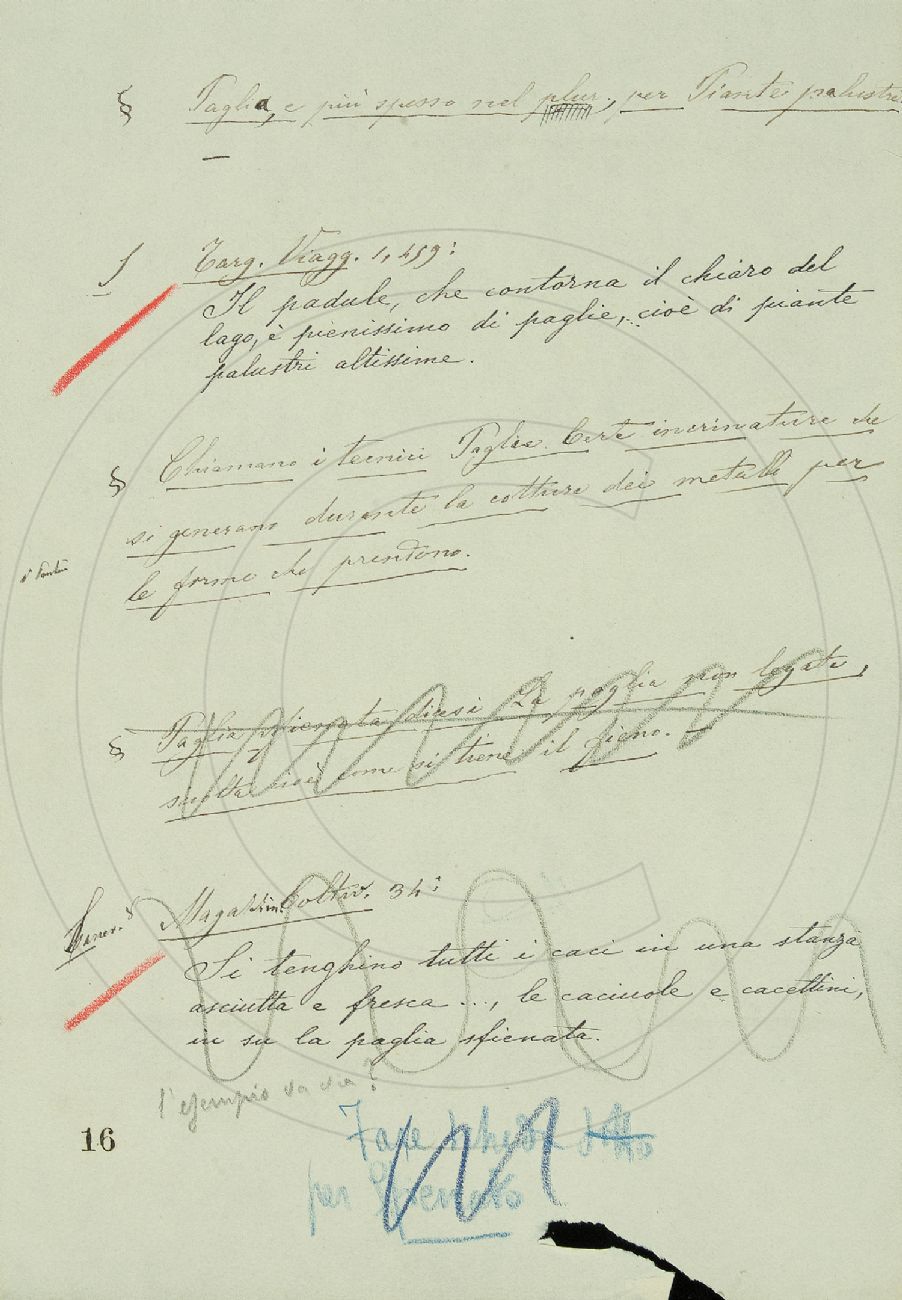 § Paglia, e più spesso nel plur., per Piante palustri.
—
S Targ. Viagg. 1, 459:
Il padule, che contorna il chiaro del
lago, è pienissimo di paglie, cioè di piante
palustri altissime.
§ Chiamano i tecnici Paglie Certe incrinature che
si generano durante la cottura dei metalli per
le forme che prendono.
§ Paglia sfienata dicesi La paglia non legata,
sciolta cioè come si tiene il fieno. —
Magazzin. Coltiv. 34:
Si tenghino tutti i caci in una stanza
asciutta e fresca ..., le caciuole e cacettini,
in su la paglia sfienata.
l'esempio va via?
16
Fare scheda
per Sfienato